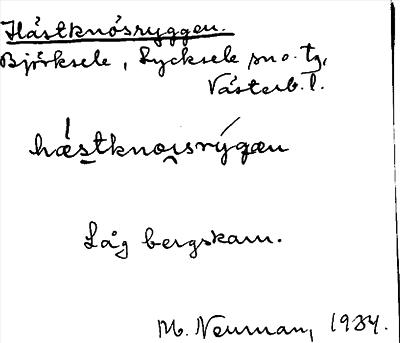 Hästknösryggen.
Björksele, Lycksele sn o. tg,
Västerb. l.
hǽstknoisrýgæn
Låg bergskam.
M. Neuman, 1934.